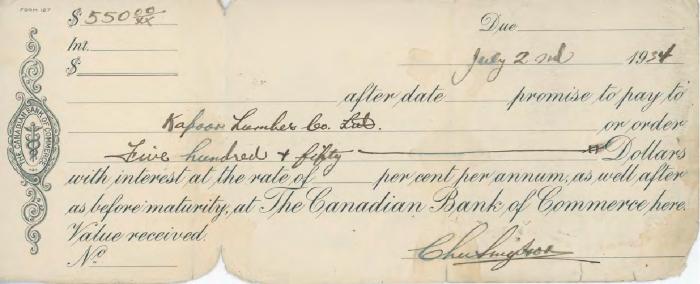 FORM 127
$ 550 00/xx
Due
Int.
July 2nd 1934
$
after date promise to pay to
Kapoor Lumber Co. Ltd. or order
Five hundred & fifty Dollars
with interest at the rate of per cent per annum, as well after
as before maturity, at The Canadian Bank of Commerce here.
Value received.
No
THE CANADIAN BANK OF COMMERCE